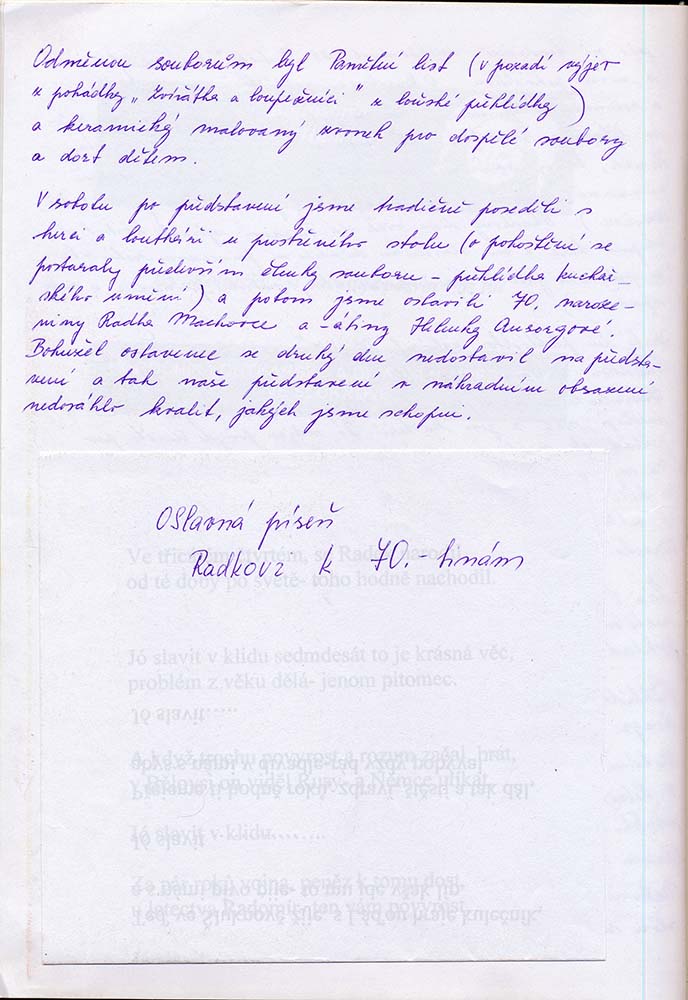 Odměnou souborům byl Pamětní list (v pozadí výjev
z pohádky „Zvířátka a loupežníci" z loňské přehlídky)
a keramický malovaný zvonek pro dospělé soubory
a dort dětem.
V sobotu po představení jsme tradičně poseděli s
herci a loutkáři u prostřeného stolu (o pohoštění se
postaraly především členky souboru - přehlídka kuchař-
ského umění) a potom jsme oslavili 70. naroze-
niny Radka Machovce a -átiny Helenky Ansorgové.
Bohužel oslavenec se druhý den nedostavil na předsta-
vení a tak naše představení v náhradním obsazení
nedosáhlo kvalit, jakých jsme schopni.
Oslavná píseň
Radkovi k 70.-tinám
Ve třicátém čtvrtém, se Radek narodil
od té doby po světě- toho hodně nachodil.
Jó slavit v klidu sedmdesát to je krásná věc,
problém z věku dělá- jenom pitomec.
Jó slavit.....
A když trochu povyrost a rozum začal brát,
viděl Rusy- a Němce utíkat.
Jó slavit v klidu........
Za pár roků vojna, peněz k tomu dost
u letectva Radomír- ten vám povyrost